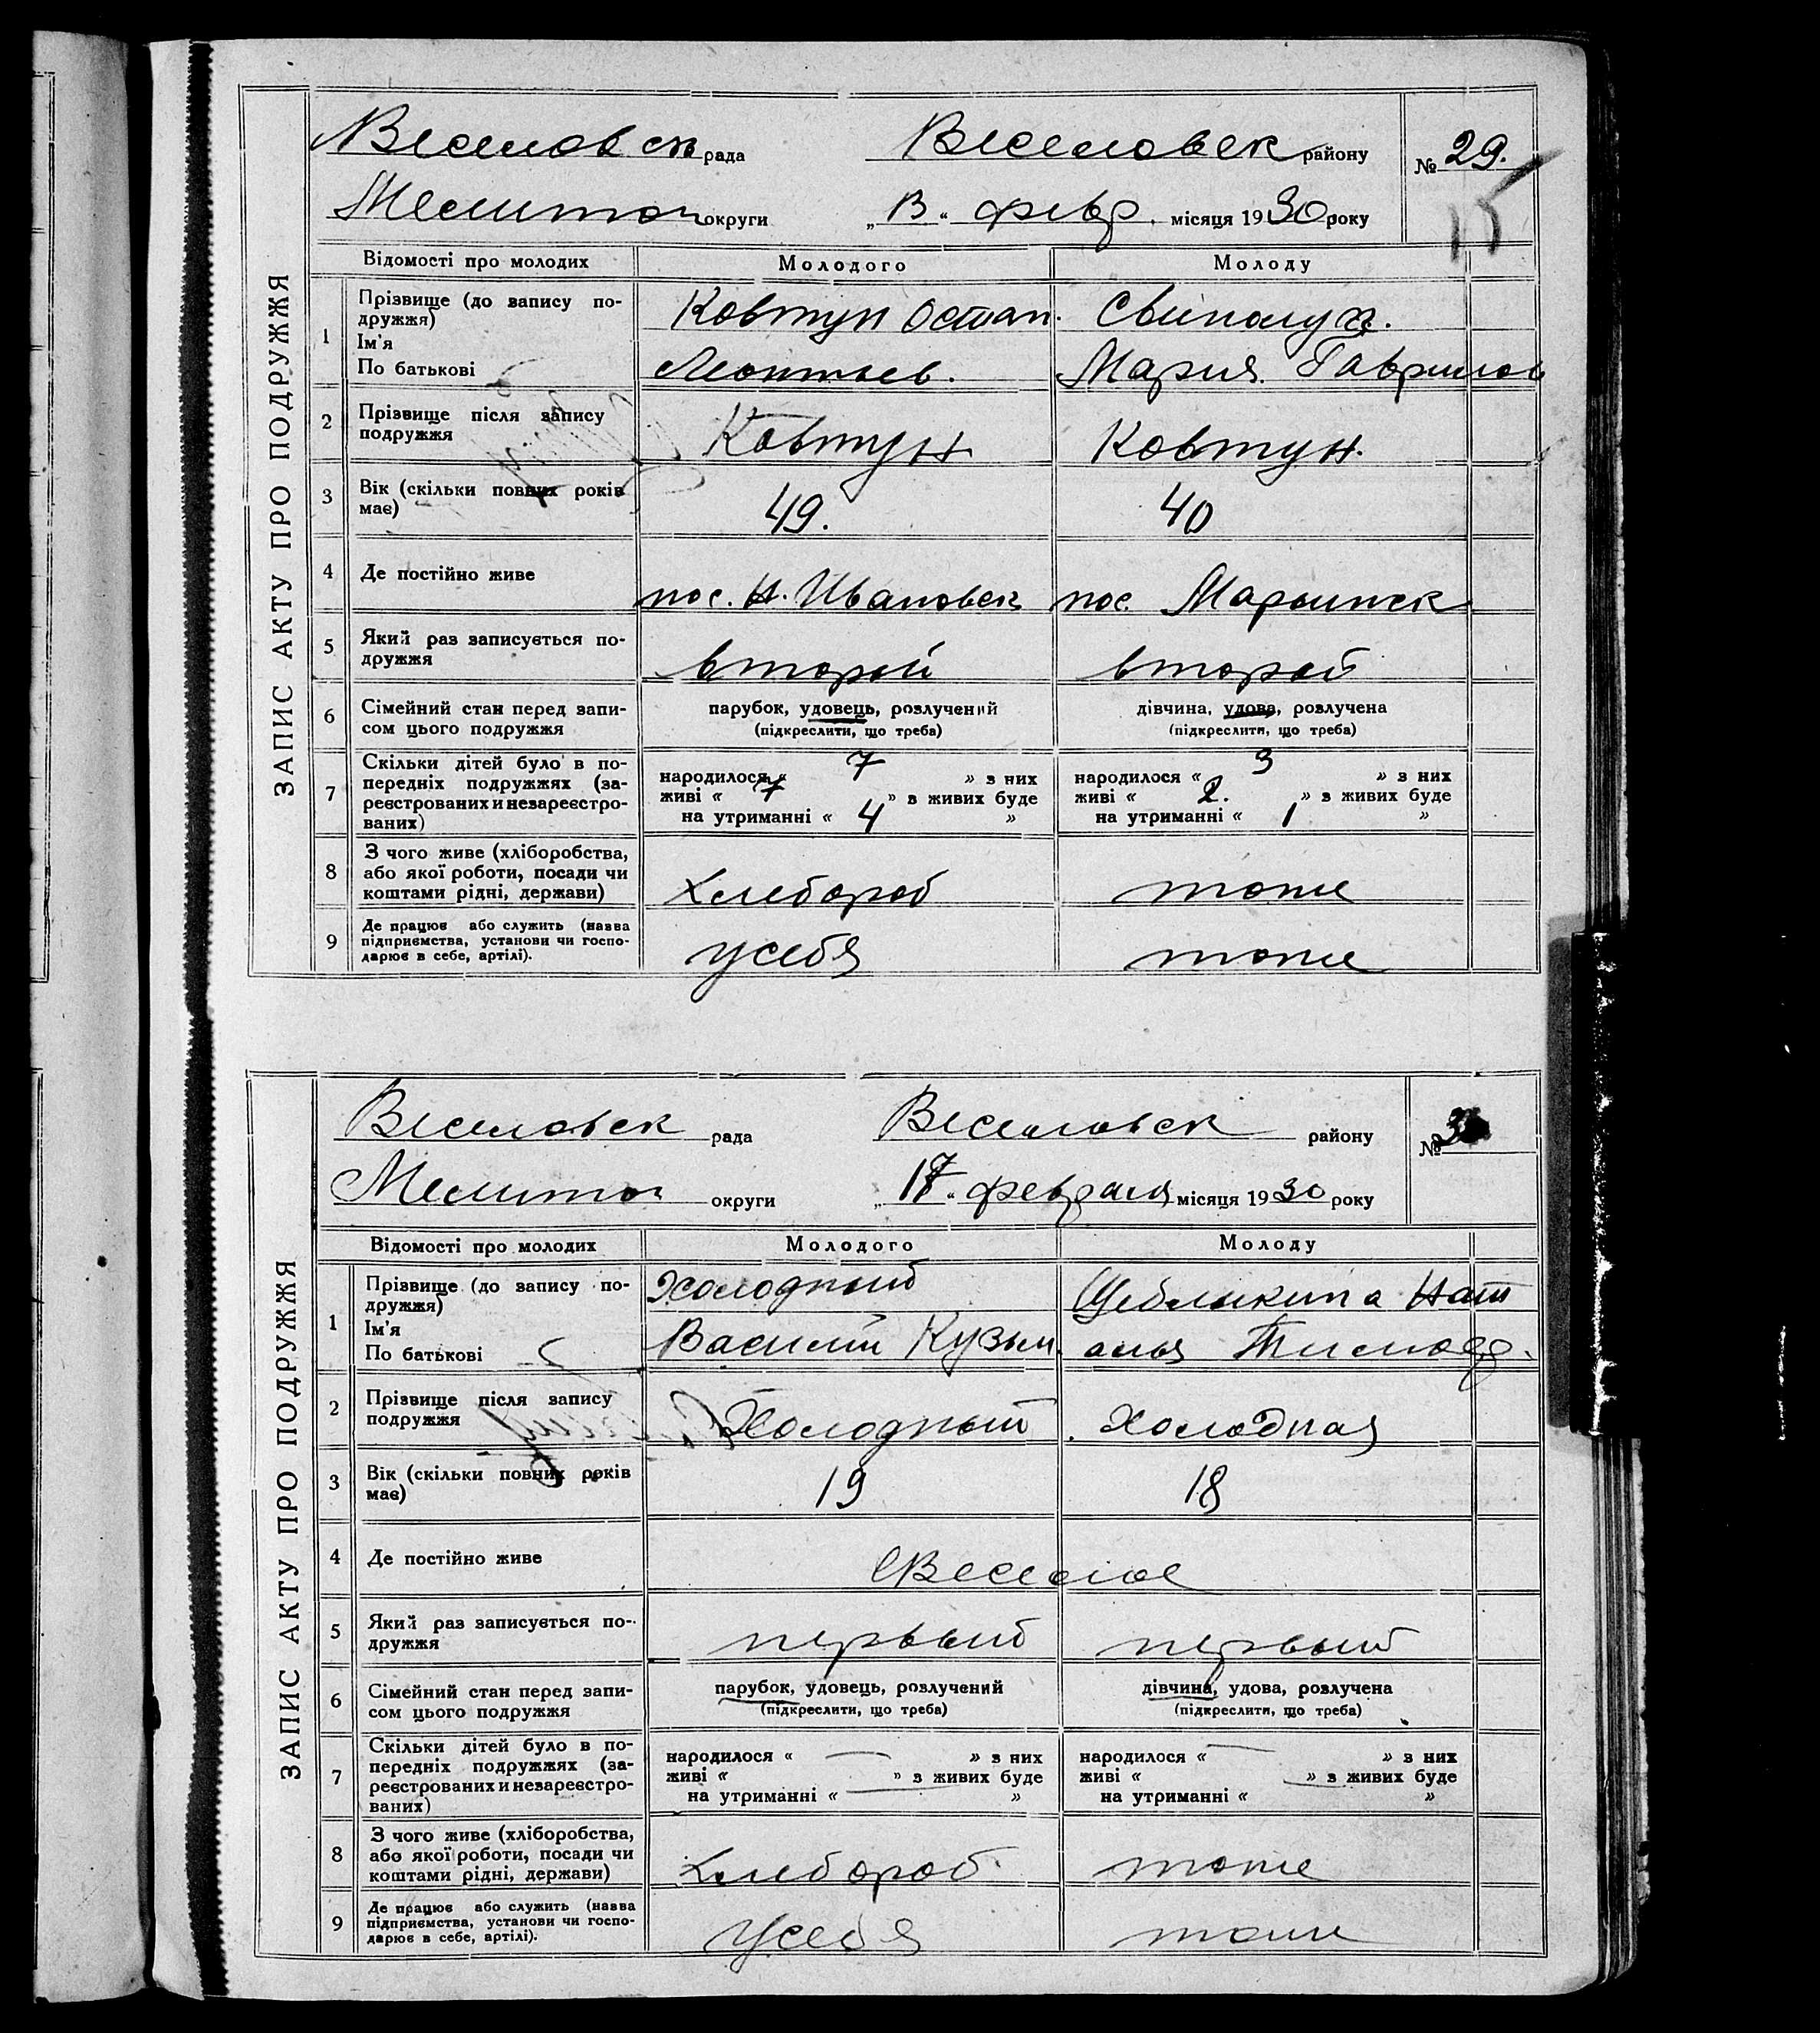 ЗАПИС АКТУ ПРО ПОДРУЖЖЯ
Веселовск рада Веселовск району № 29.
15
Мелитоп округи „13“ февр. місяця 1930 року
Відомості про молодих Молодого Молоду
1 Прізвище (до запису по-
дружжя)
Ім'я
По батькові
Ковтун Остап. Свинолуп.
Леонтьев. Мария Гаврилов
2 Прізвище після запису
подружжя
Ковтун Ковтун.
3 Вік (скільки повних років
має)
49. 40
4 Де постійно живе
пос. Н. Ивановск пос. Марьинск
5 Який раз записується по-
дружжя
второй второй
6 Сімейний стан перед запи-
сом цього подружжя
парубок, удовець, розлучений дівчина, удова, розлучена
(підкреслити, що треба) (підкреслити, що треба)
7 Скільки дітей було в по-
передніх подружжях (за-
реєстрованих и незареєстро-
ваних)
народилося « 7 » з них народилося « 3 » з них
живі « 7 » з живих буде живі « 2. » з живих буде
на утриманні « 4 » на утриманні « 1 »
8 З чого живе (хліборобства,
або якої роботи, посади чи
коштами рідні, держави)
хлебороб тоже
9 Де працює або служить (назва
підприємства, установи чи госпо-
дарює в себе, артілі).
у себя тоже
ЗАПИС АКТУ ПРО ПОДРУЖЖЯ
Веселовск рада Веселовск району №
Мелитоп округи „17“ февраля місяця 1930 року
Відомості про молодих Молодого Молоду
1 Прізвище (до запису по-
дружжя)
Ім'я
По батькові
Холодный Щеблыкина Нат
Василий Кузьм. алья Тимоф.
2 Прізвище після запису
подружжя
Холодный Холодная
3 Вік (скільки повних років
має)
19 18
4 Де постійно живе
с Веселое
5 Який раз записується по-
дружжя
первый первый
6 Сімейний стан перед запи-
сом цього подружжя
парубок, удовець, розлучений дівчина, удова, розлучена
(підкреслити, що треба) (підкреслити, що треба)
7 Скільки дітей було в по-
передніх подружжях (за-
реєстрованих и незареєстро-
ваних)
народилося « — » з них народилося « — » з них
живі « — » з живих буде живі « — » з живих буде
на утриманні « — » на утриманні « »
8 З чого живе (хліборобства,
або якої роботи, посади чи
коштами рідні, держави)
хлебороб тоже
9 Де працює або служить (назва
підприємства, установи чи госпо-
дарює в себе, артілі).
у себя тоже